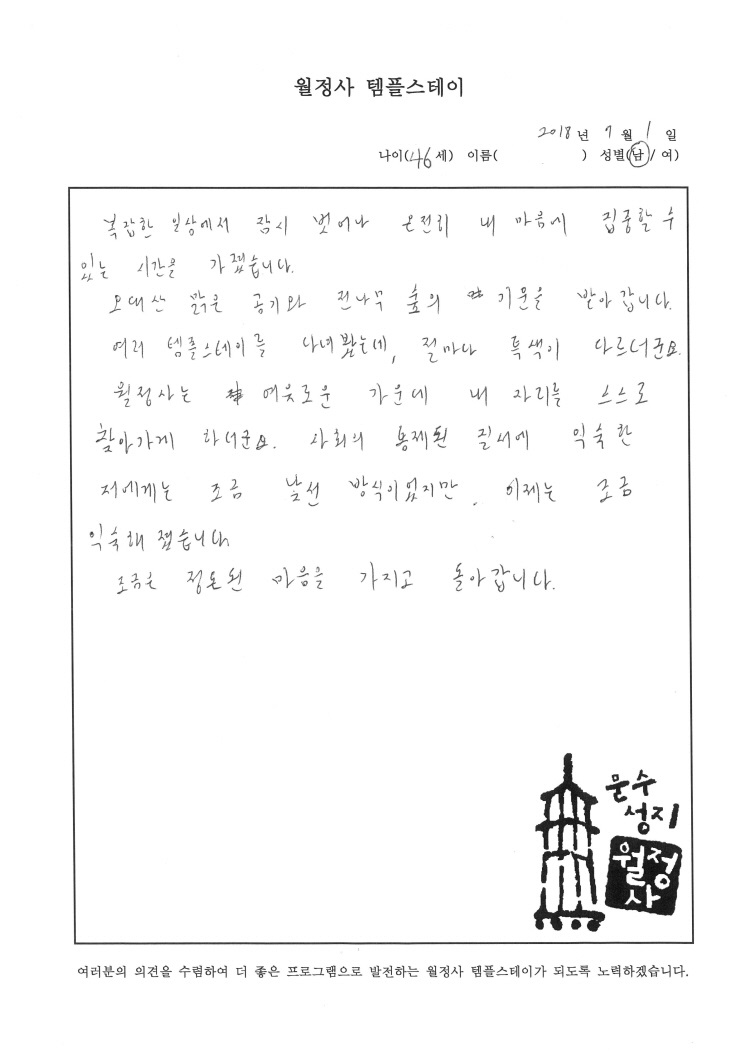 월정사 템플스테이
2018년 7월 1일
나이(46세) 이름( ) 성별(남/여)
복잡한 일상에서 잠시 벗어나 온전히 내 마음에 집중할 수
있는 시간을 가졌습니다.
오대산 맑은 공기와 전나무 숲의 기운을 받아 갑니다.
여러 템플스테이를 다녀봤는데, 절마다 특색이 다르더군요.
월정사는 여유로운 가운데 내 자리를 스스로
찾아가게 하더군요. 사회의 통제된 질서에 익숙한
저에게는 조금 낯선 방식이었지만, 이제는 조금
익숙해 졌습니다.
조금은 정돈된 마음을 가지고 돌아갑니다.
문수
성지
월정
사
여러분의 의견을 수렴하여 더 좋은 프로그램으로 발전하는 월정사 템플스테이가 되도록 노력하겠습니다.